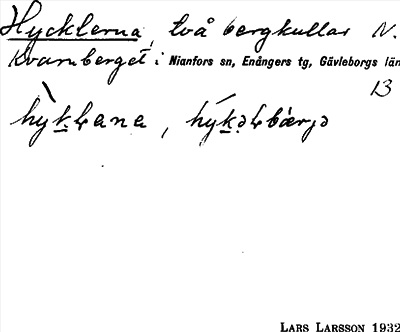 Hycklerna, två bergkullar N.
Kvarnberget i Nianfors sn, Enångers tg, Gävleborgs län
13
LARS LARSSON 1932